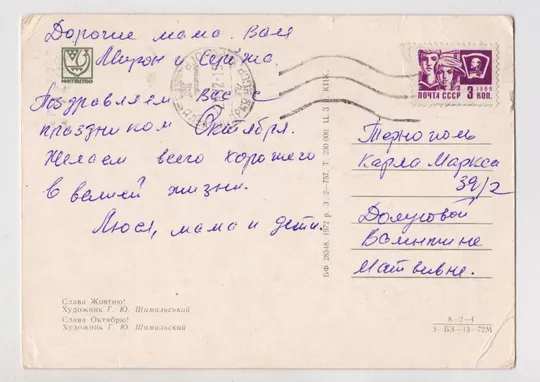 Дорогие мама. Валя
Мирон и Серёжа.
Поздравляем Вас с
праздником Октября.
Желаем всего хорошего
в вашей жизни.
Люся, мама и дети.
МИСТЕЦТВО
ПОЧТА СССР
1966
3 КОП.
Тернополь
Карла Маркса
39/2
Долуговой
Валентине
Матвивне.
БФ 28548. 1972 р. З. 2—757. Т. 230 000. Ц. 3 КПК.
Слава Жовтню!
Художник Г. Ю. Шимальський
Слава Октябрю!
Художник Г. Ю. Шимальский
8—2—4
3—БЗ—13—72М